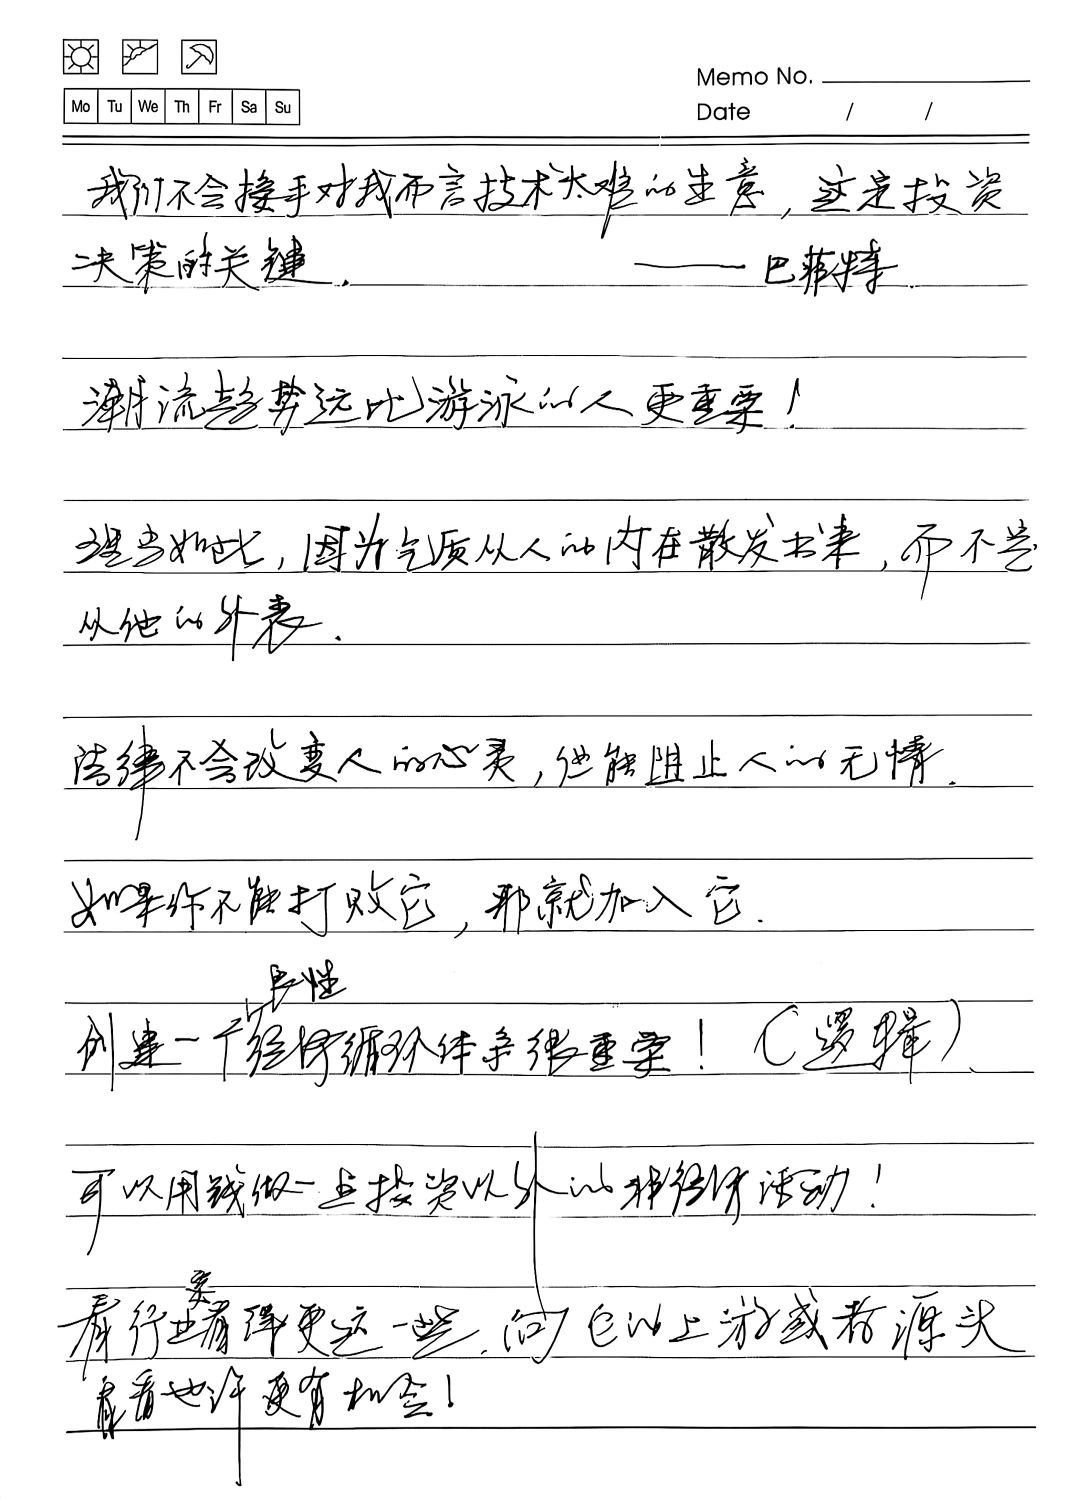 Memo No.
Mo Tu We Th Fr Sa Su
Date / /
我们不会接手对我而言技术太难的生意，这是投资
决策的关键．
——巴菲特．
潮流趋势远比游泳的人更重要！
理当如此，因为气质从人的内在散发出来，而不是
从他的外表．
法律不会改变人的心灵，但能阻止人的无情．
如果你不能打败它，那就加入它．
良性
创建一个经济循环体系很重要！（逻辑）
可以用钱做一些投资以外的非经济活动！
要
看行业看得更远一些．向它的上游或者源头
看看也许更有机会！